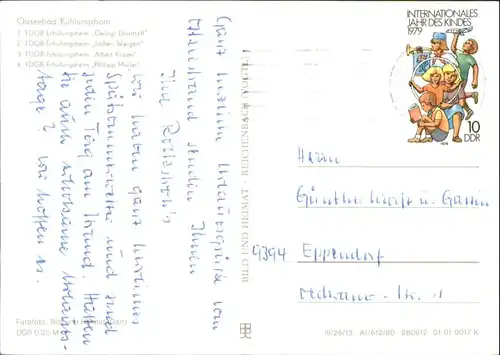 Ostseebad Kühlungsborn
1 FDGB-Erholungsheim „Georgi Dimitroff"
2 FDGB-Erholungsheim „Jochen Weigert"
3 FDGB-Erholungsheim „Albert Kayser"
4 FDGB-Erholungsheim „Philipp Müller"
Ganz herzliche Urlaubsgrüße vom
Ostseestrand senden Ihnen
Ihre
Wir haben ganz herrliches
Spätsommerwetter und sind
jeden Tag am Strand. Hatten
Sie auch erholsame Urlaubs-
tage? Wir hoffen es.
Farbfoto:
DDR 0,20 M
BILD UND HEIMAT REICHENBACH (VOGTL)
INTERNATIONALES
JAHR DES KINDES
1979
10
DDR
Herrn
Günther u. Gattin
9394 Eppendorf
III/26/13 A1/612/80 280612 01 01 0017 K